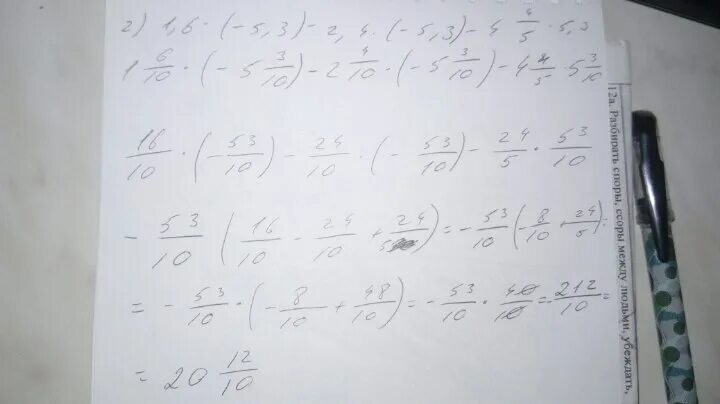 2) 1,6 · (-5,3) - 2,4 · (-5,3) - 4 4/5 · 5,3
1 6/10 · (-5 3/10) - 2 4/10 · (-5 3/10) - 4 4/5 · 5 3/10
16/10 · (-53/10) - 24/10 · (-53/10) - 24/5 · 53/10
- 53/10 (16/10 - 24/10 + 24/5) = - 53/10 (8/10 + 24/5) =
= - 53/10 · (- 8/10 + 48/10) = - 53/10 · 40/10 = - 212/10 =
= 20 12/10
12а. Разбирать споры, ссоры между людьми, убеждать,